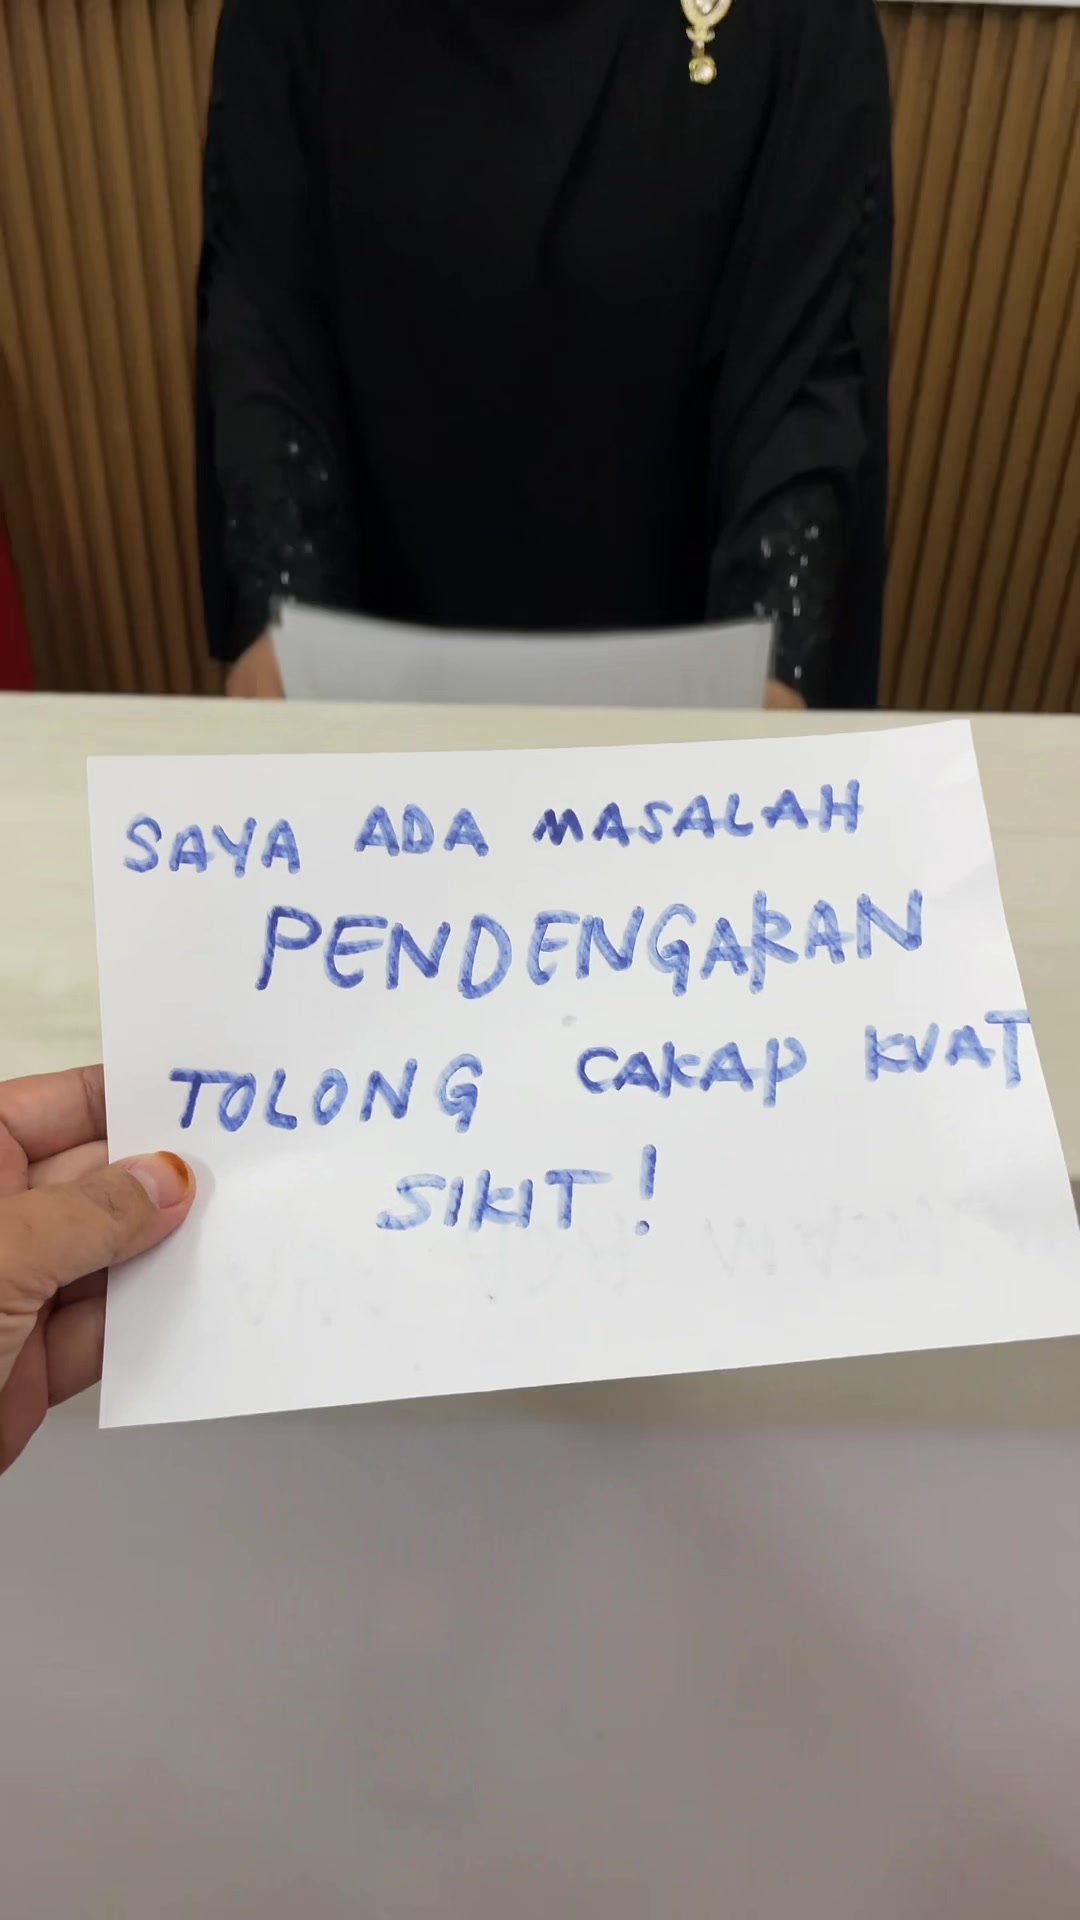 SAYA ADA MASALAH
PENDENGARAN
TOLONG CAKAP KUAT
SIKIT!